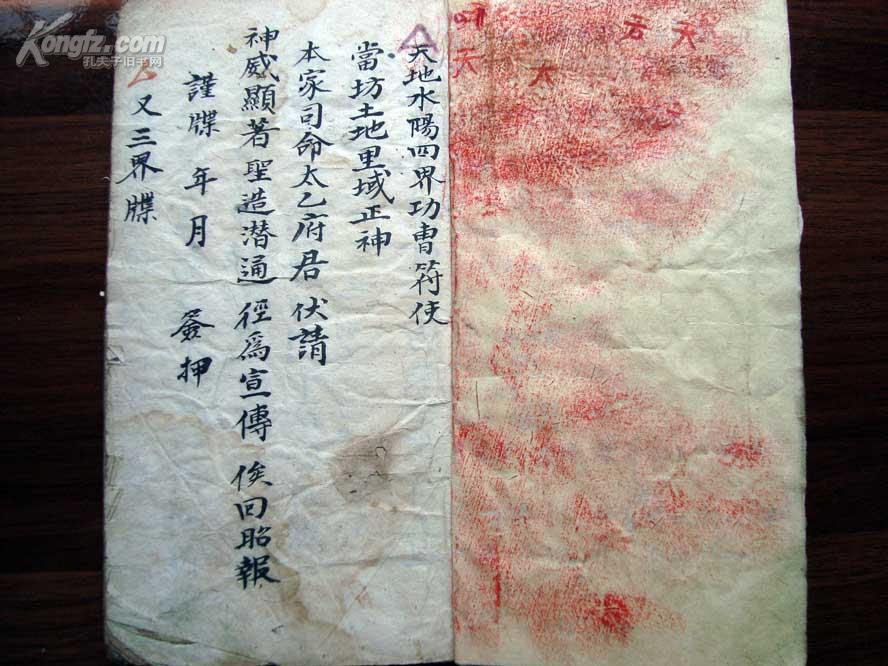 叶 天 云 天 太 云
天地水陽四界功曹符使
當坊土地里域正神
本家司命太乙府君 伏請
神威顯著 聖造潜通 徑爲宣傳 俟回昭報
謹牒 年 月 簽押
又三界牒
Kongfz.com
孔夫子旧书网